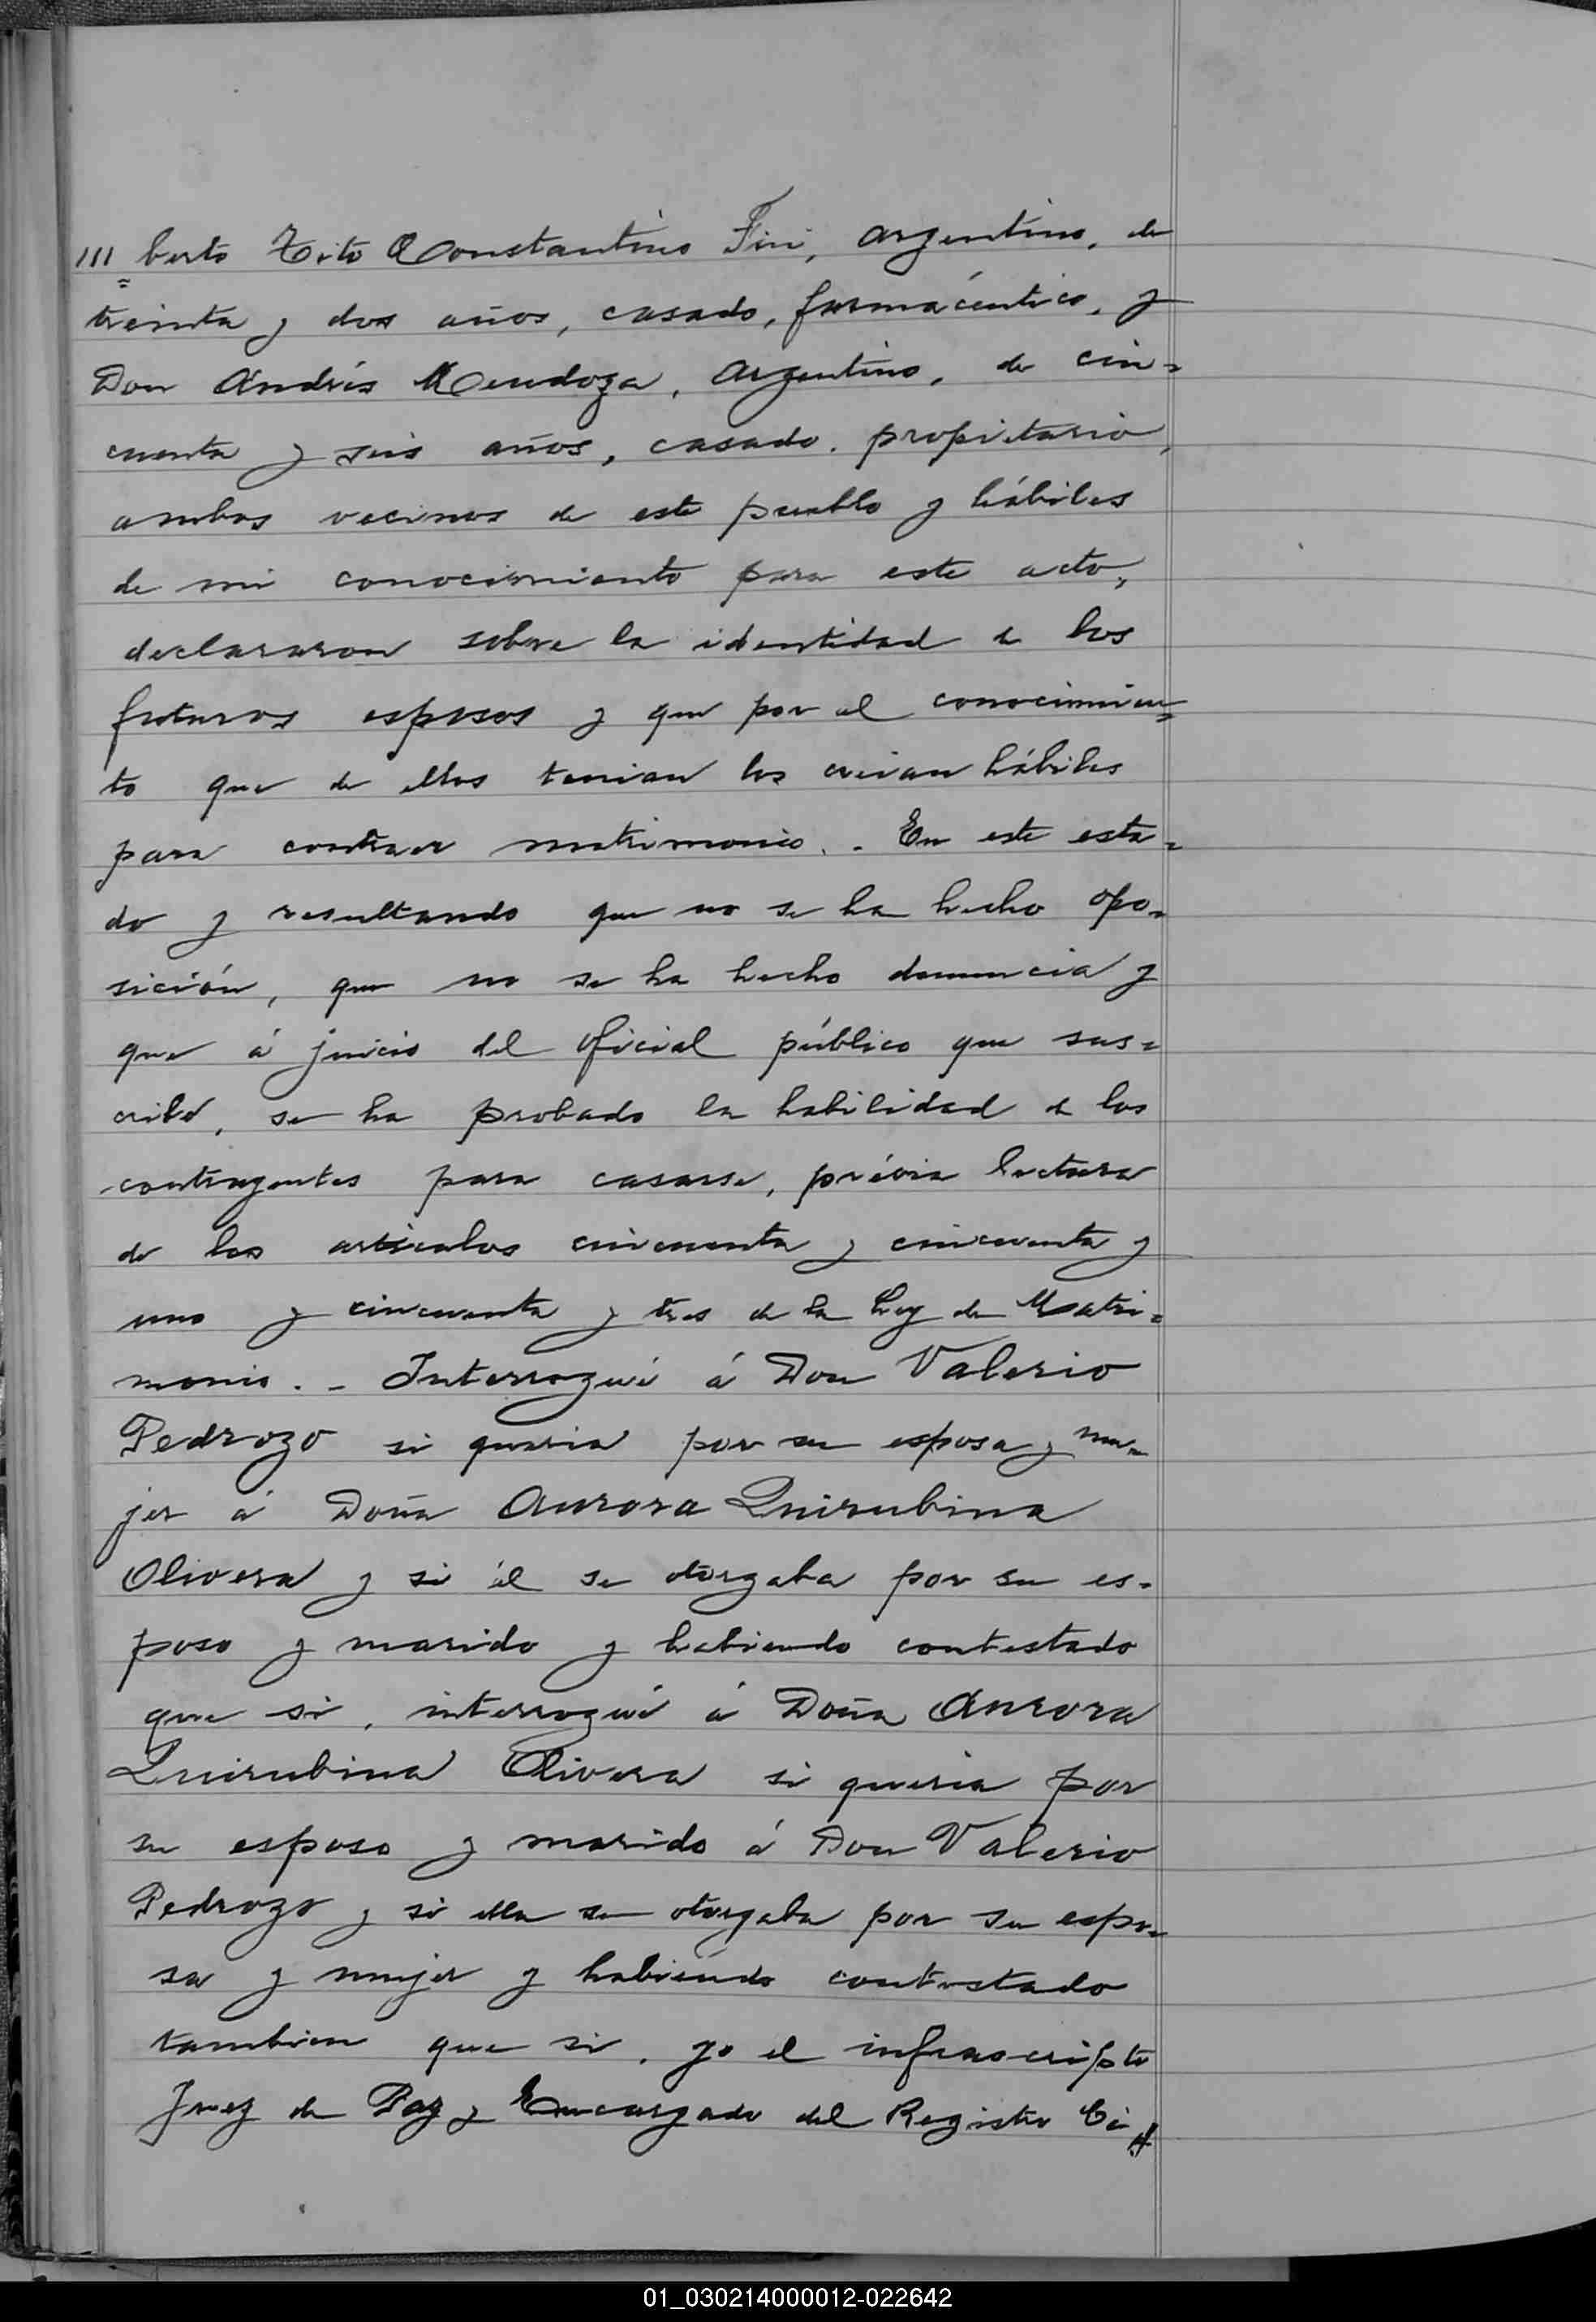 /// berto Tito Constantino Fini, argentino, de
treinta y dos años, casado, farmacéutico, y
Don Andrés Mendoza, argentino, de cin=
cuenta y seis años, casado, propietario,
ambos vecinos de este pueblo y hábiles
de mi conocimiento para este acto,
declararon sobre la identidad de los
futuros esposos y que por el conocimien=
to que de ellos tenian los creian hábiles
para contraer matrimonio. - En este esta=
do y resultando que no se ha hecho opo=
sición, que no se ha hecho denuncia y
que á juicio del oficial público que sus=
cribe, se ha probado la habilidad de los
contrayentes para casarse, prévia lectura
de los artículos cincuenta y cincuenta y
uno y cincuenta y tres de la Ley de Matri=
monio. - Interrogué á Don Valerio
Pedrozo si queria por su esposa y mu=
jer á Doña Aurora Quirubina
Olivera y si él se otorgaba por su es-
poso y marido y habiendo contestado
que si, interrogué á Doña Aurora
Quirubina Olivera si queria por
su esposo y marido á Don Valerio
Pedrozo y si ella se otorgaba por su espo=
sa y mujer y habiendo contestado
tambien que si, yo el infrascripto
Juez de Paz y Encargado del Registro Ci
01_030214000012-022642